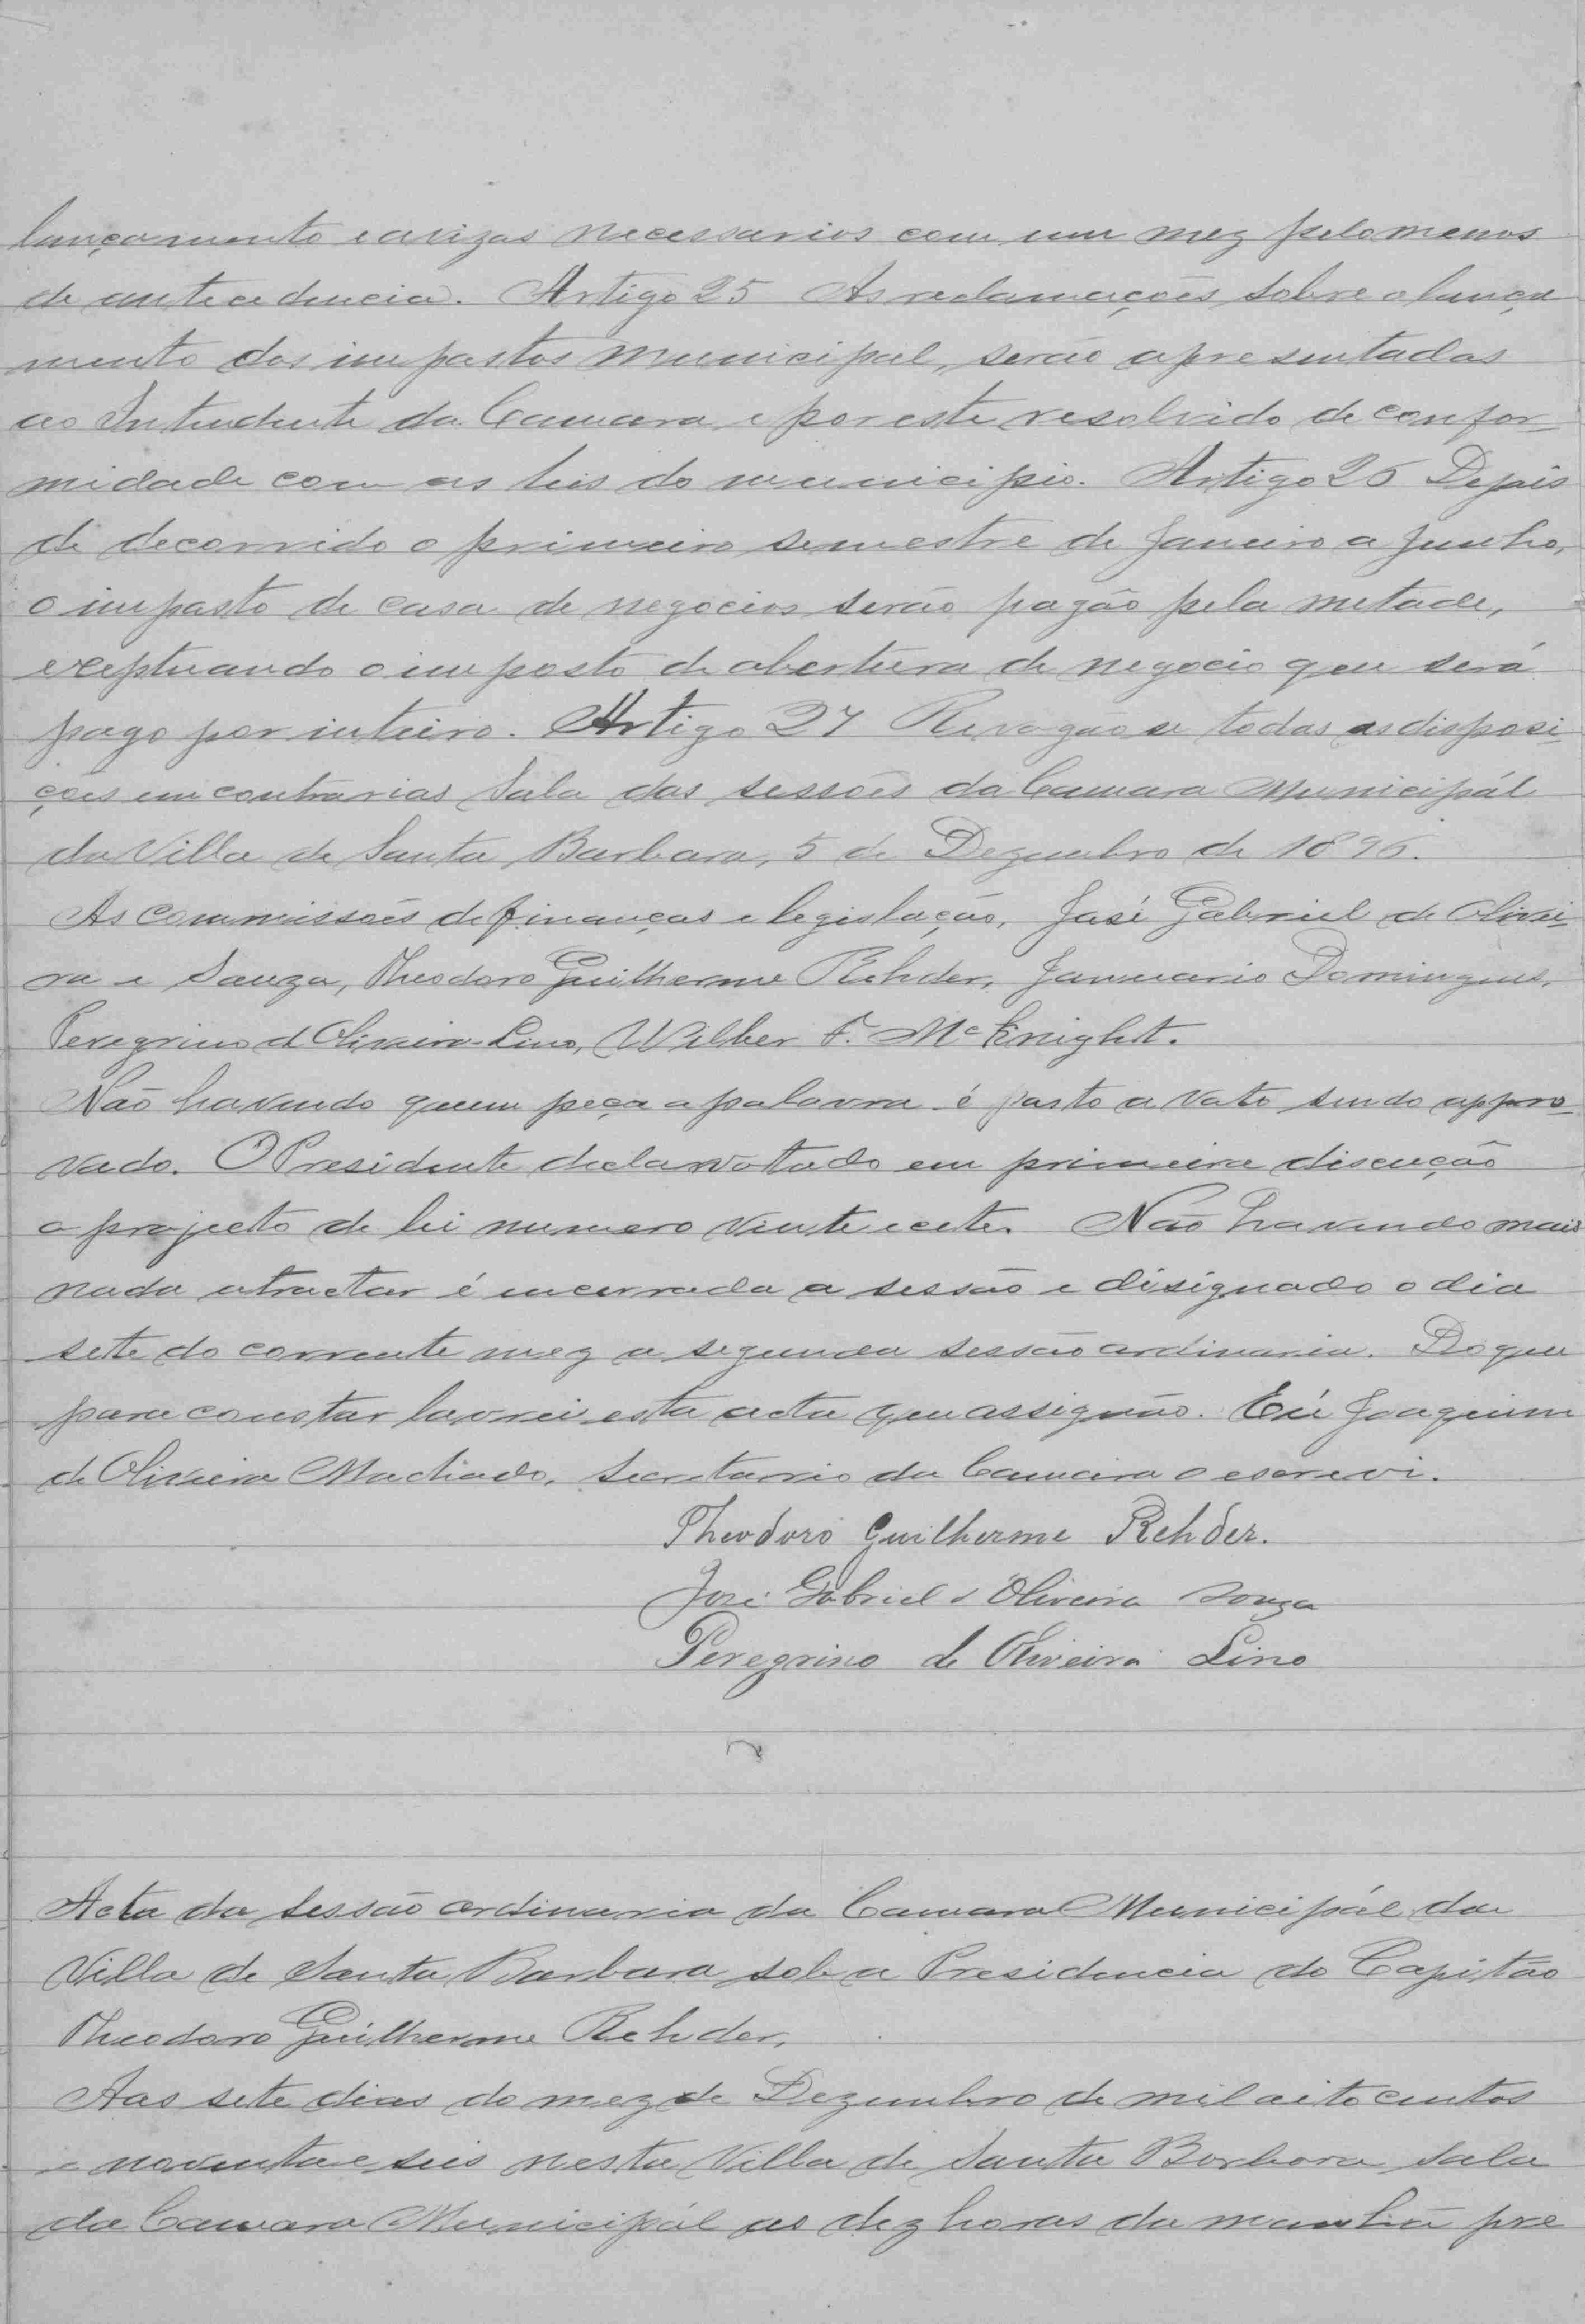 lançamento e avizos necessarios com um mez pelo menos
de antecedencia. Artigo 25 As reclamações sobre o lança
mento dos impostos municipal, serão apresentadas
ao Intendente da Camara e por este resolvido de confor-
midade com as leis do municipio. Artigo 26 Depois
de decorrido o primeiro semestre de Janeiro a Junho,
o imposto de casa de negocios serão pagão pela metade,
exeptuando o imposto de abertura de negocio que será
pago por inteiro. Artigo 27 Revogão se todas as disposi-
ções em contrarias Sala das sessões da Camara Municipál
da Villa de Santa Barbara, 5 de Dezembro de 1896.
As commissões de finanças e legislação, José Gabriel de Olivei-
ra e Souza, Theodoro Guilherme Rehder, Januario Domingues,
Peregrino d Oliveira Lino, Wilber F. McKnight.
Não havendo quem peça a palavra é posto a voto sendo appro-
vado. O Presidente declara votado em primeira discução
o projecto de lei numero vinte e cete. Não havendo mais
nada atractar é encerrada a sessão e disignado o dia
sete do corrente mez a segunda sessão ordinaria. Do que
para constar lavrei esta acta que assignão. Eú Joaquim
de Oliveira Machado, Secretario da Camara o escrevi.
Theodoro Guilherme Rehder.
José Gabriel d'Oliveira Souza
Peregrino de Oliveira Lino
Acta da Sessão ordinaria da Camara Municipál da
Villa de Santa Barbara sob a Presidencia do Capitão
Theodoro Guilherme Rehder,
Aos sete dias do mez de Dezembro de mil oito centos
e noventa e seis nesta Villa de Santa Barbara Sala
da Camara Municipál as dez horas da manhã pre